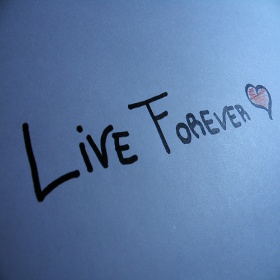 Live Forever